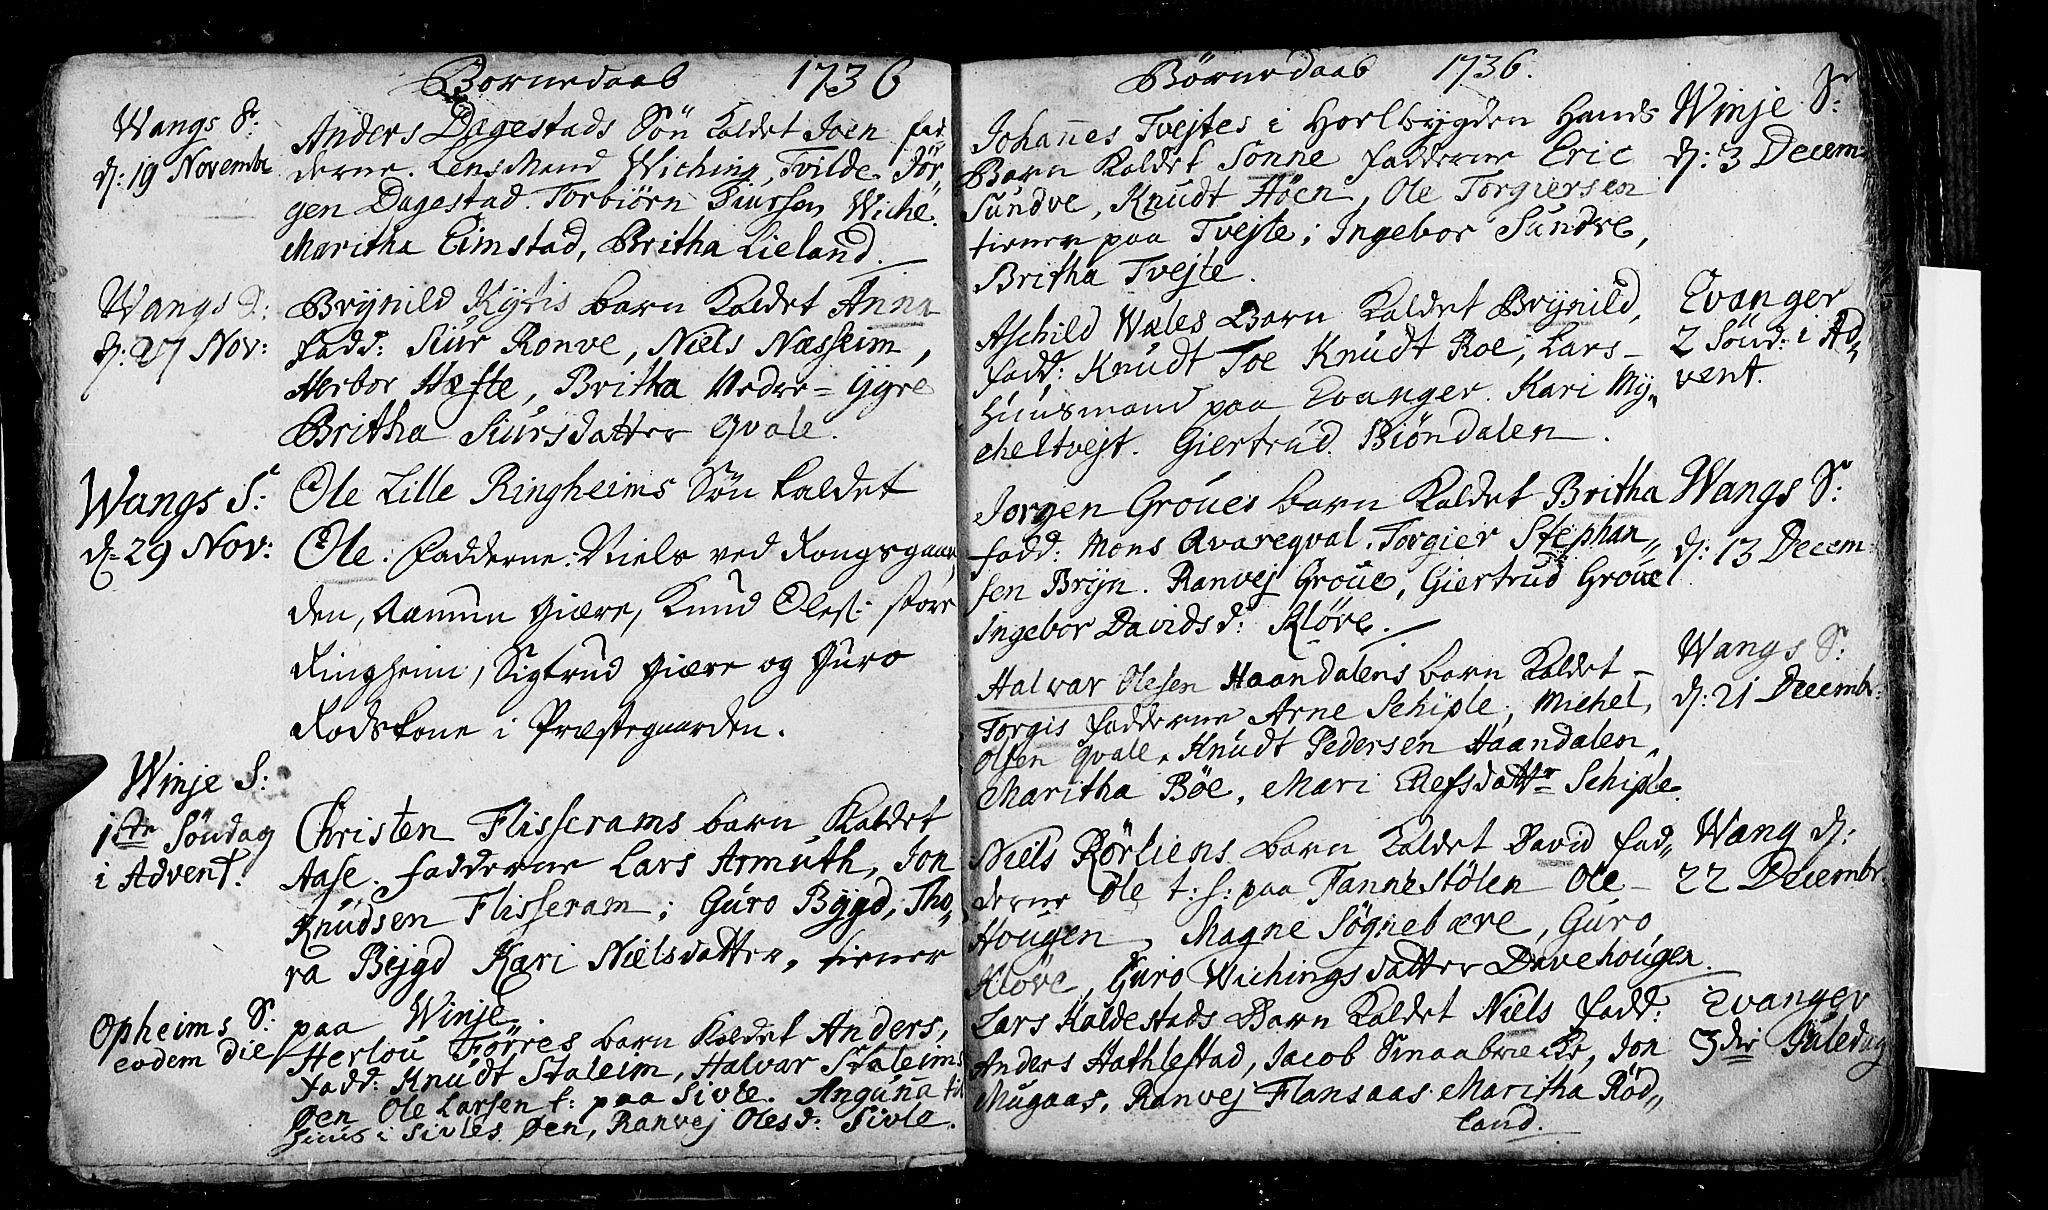 Børnedaab 1736
Wangs S:
d: 19 Novembr
Anders Dagestads Søn kaldet Joen fad-
derne. LensMand Wiching, Tvilde. Jør
gen Dagestad. Torbiörn Siursen Wiche.
Maritha Eimstad, Britha Lieland.
Wangs S:
d: 27 Nov:
Brÿnild Kÿtis barn kaldet Anna
fadd: Siur Ronve, Niels Næsheim,
Herbor Hæfte, Britha Nedre=Gjyre
Britha Siursdatter Qvale.
Wangs S:
d= 29 Nov:
Ole Lille Ringheims Søn kaldet
Ole. Fadderne: Niels ved Kongsgaar
den, Aamun Giære, Knud Oles: store
Ringheim, Sigtrud Giære og Guro
Rodskone i Præstegaarden.
Winje S:
1ste Söndag
i Advent.
Christen Flisserams barn kaldet
Aase. fadderne Lars Armuth, Jon
Knudsen Flisseram; Guro Bÿgd, Tho„
ra Bÿgd Kari Nielsdatter, tiener
paa Winje.
Opheims S:
eodem die
Herlou Förres barn kaldet Anders,
fadd: Knudt Staleim, Halvar Staleims
Øen Ole Larsen t: paa Sivle. Anguna til
huus i Sivles Øen, Ranvej Olesd: Sivle.
Børnedaab 1736.
Johannes Tvejtes i Horlbygden Hands
Barn kaldet Sonne fadderne Eric
Sundve, Knudt Höen, Ole Torgiersen
tiener paa Tvejte; Ingebor Sundve,
Britha Tvejte.
Winje S:
d: 3 Decem:
Aschild Wæles Barn kaldet Brÿnild,
fadd: Knudt Toe Knudt Roe, Lars-
Huusmand paa Evanger. Kari Mÿ„
cheltvejt. Giertrud Biöndalen.
Evanger
2 Sönd: i Ad„
vent.
Jorgen Groues barn kaldet Britha
fadd: Mons Qvareqval. Torgier Stephan„
sen Brÿn. Ranvej Groue, Giertrud Groue
Ingebor Davidsd: Klöve.
Wangs S:
d: 13 Decem-
Halvar Olesen Haandalens barn kaldet-
Torgis fadderne Arne Schiple, Michel,
Olsen Qvale. Knudt Pedersen Haandalen,
Maritha Böe, Mari Elefsdattr Schiple.
Wangs S:
d: 21 Decembr:
Niels Rörliens barn kaldet David fad„
derne Ole t: h: paa Fannestölen Ole-
Hougen, Magne Sögnebære, Guro
Klöve, Guro Wichingsdatter Davehougen.
Wang d:
22 Decembr.
Lars Kaldestads Barn kaldet Niels fadd:
Anders Hathlestad, Jacob Smaabrecke, Jon
Mugaas, Ranvej Flansaas. Maritha Röd„
land.
Evanger
3die Juledag